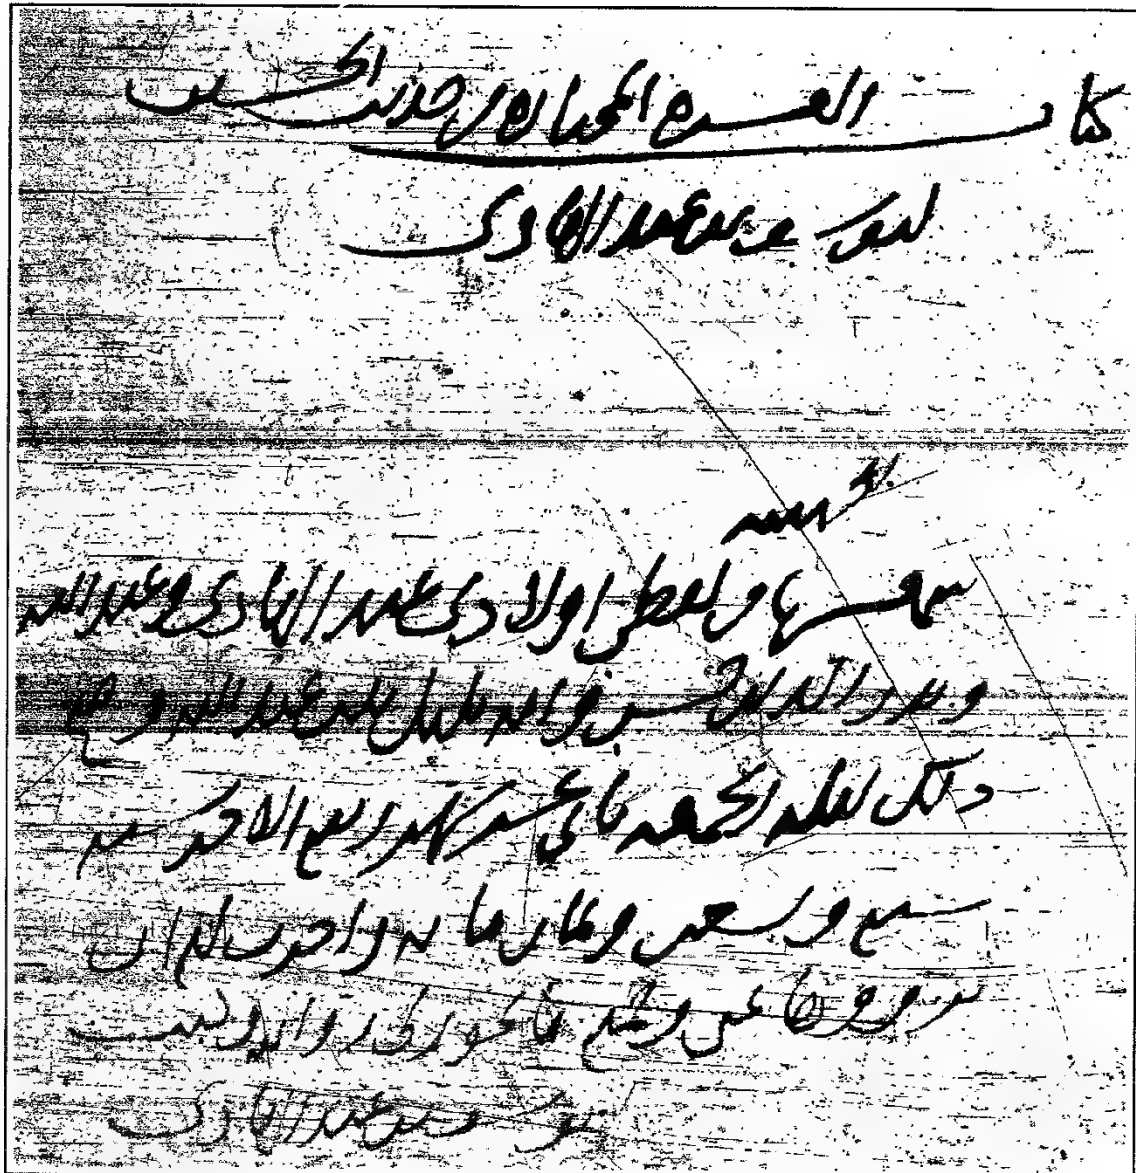 كتاب العشرة المختارة من حديث
ليوسف بن حسن بن عبد الهادي
الحمد لله
سمع من لفظي اولادي عبد الهادي وعبد الله
وبدر الدين حسن وامه بلبل بنت عبد الله وصح
ذلك ليلة الجمعة ثاني عشر شهر ربيع الاخر سنة
سبع وتسعين وثمان مائة واجزت لهم ان
يرووها عني وجميع ما يجوز لي روايته وكتب
يوسف بن عبد الهادي